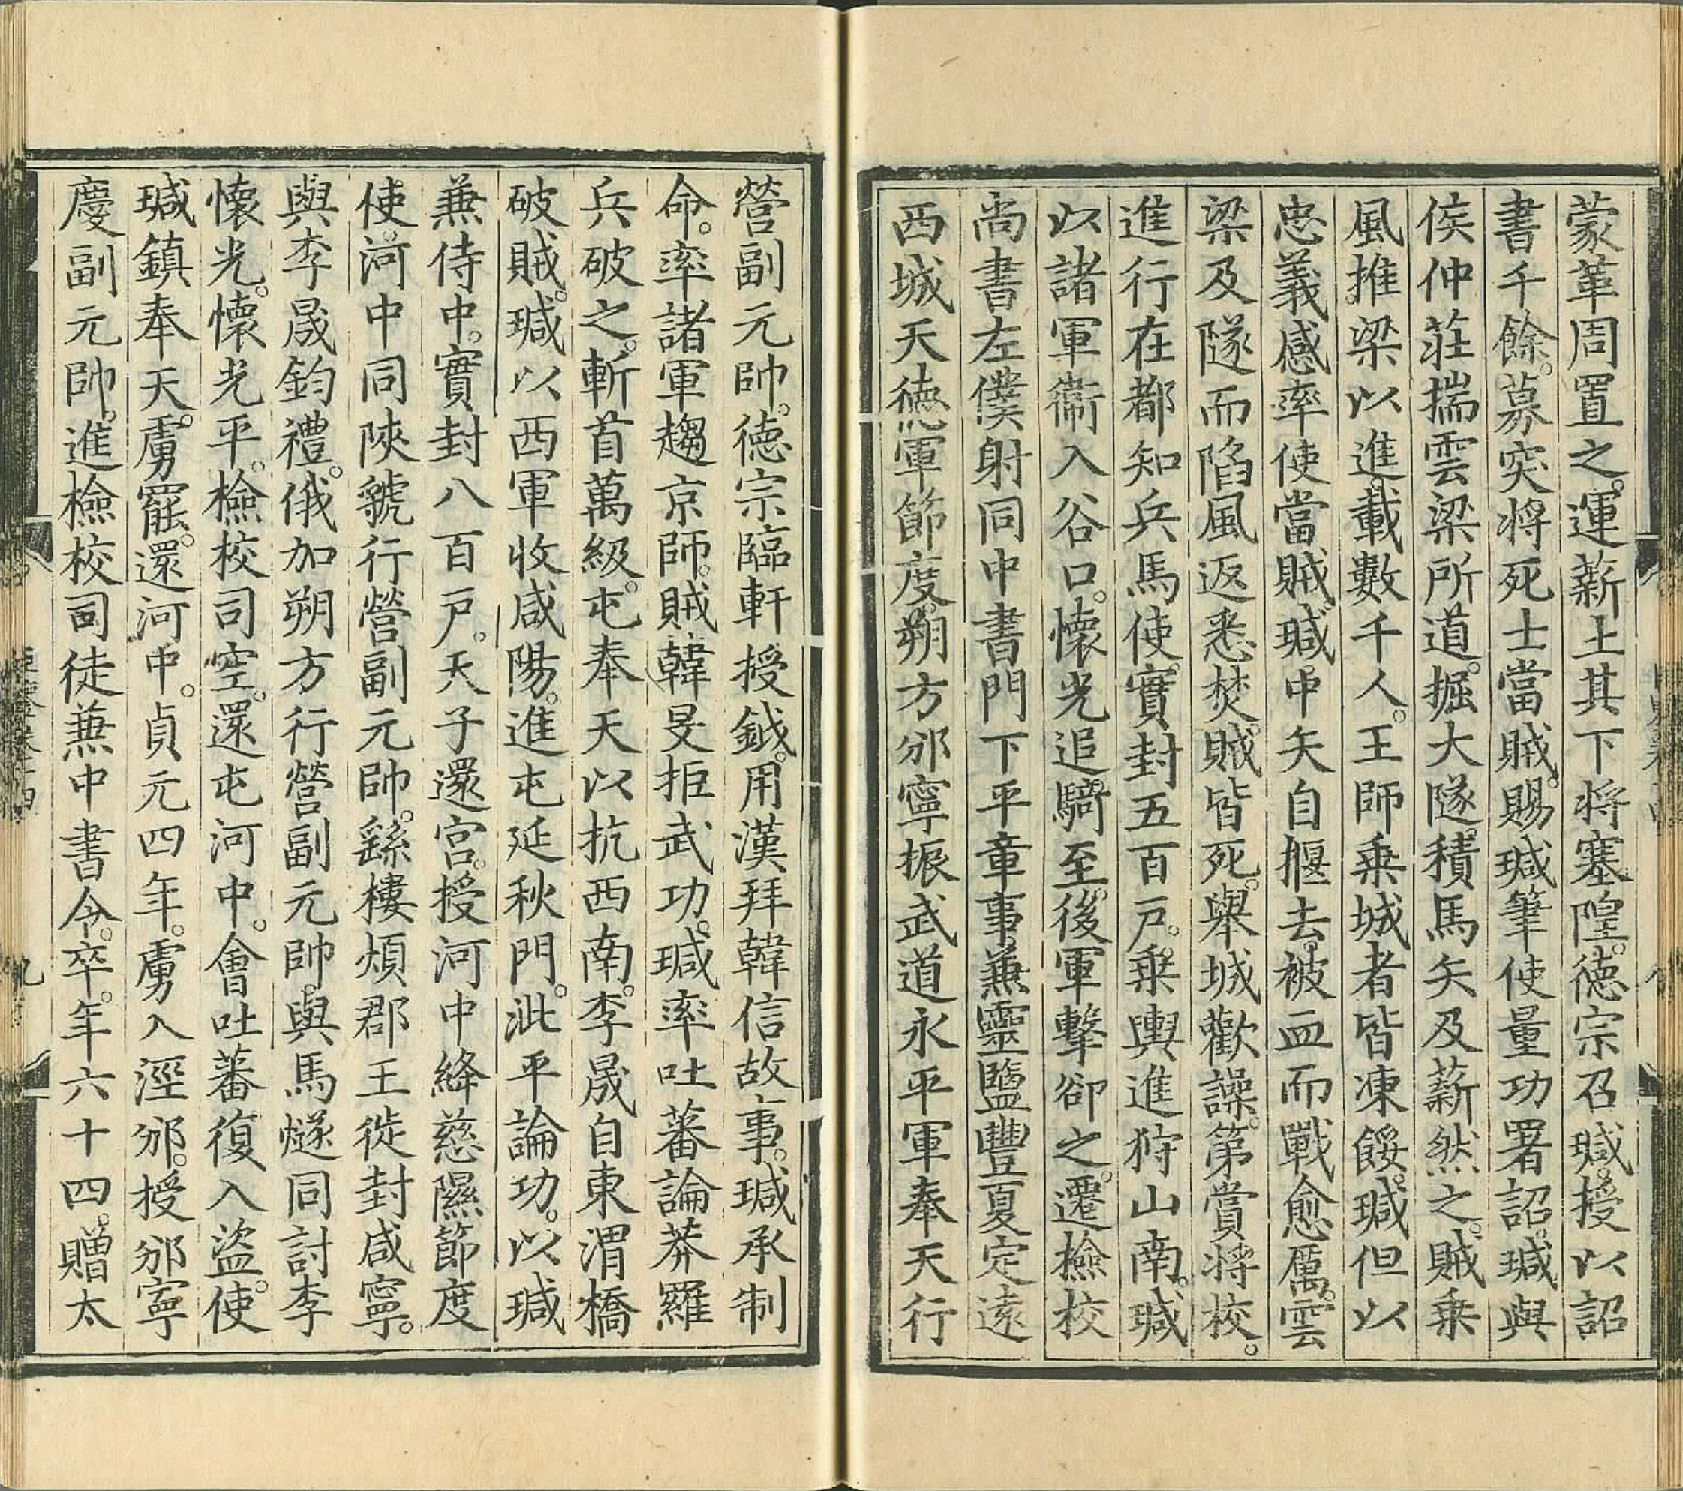 蒙革周置之。運薪土其下将塞隍。德宗召瑊。授以詔
書千餘。募突将死士當賊。賜瑊筆使量功署詔。瑊與
侯仲莊揣雲梁所道。掘大隧。積馬矢及薪然之。賊乗
風推梁以進。載數千人。王師乗城者皆凍餒。瑊但以
忠義感率使當賊。瑊中矢自揠去。被血而戰愈厲。雲
梁及隧而陷。風返悉焚。賊皆死。舉城歡譟。第賞将校。
進行在都知兵馬使。實封五百戸。乗輿進狩山南。瑊
以諸軍衞入谷口。懷光追騎至。後軍擊卻之。遷檢校
尚書左僕射同中書門下平章事兼靈鹽豐夏定遠
西城天德軍節度。朔方邠寧振武道永平軍奉天行
營副元帥。德宗臨軒授鉞。用漢拜韓信故事。瑊承制
命。率諸軍趨京師。賊韓旻拒武功。瑊率吐蕃論莽羅
兵破之。斬首萬級。屯奉天以抗西南。李晟自東渭橋
破賊。瑊以西軍收咸陽。進屯延秋門。泚平論功。以瑊
兼侍中。實封八百戸。天子還宮。授河中絳慈隰節度
使。河中同陝虢行營副元帥。繇樓煩郡王徙封咸寧。
與李晟鈞禮。俄加朔方行營副元帥。與馬燧同討李
懷光。懷光平。檢校司空。還屯河中。會吐蕃復入盜。使
瑊鎮奉天。虜罷。還河中。貞元四年。虜入涇邠。授邠寧
慶副元帥。進檢校司徒兼中書令。卒。年六十四。贈太